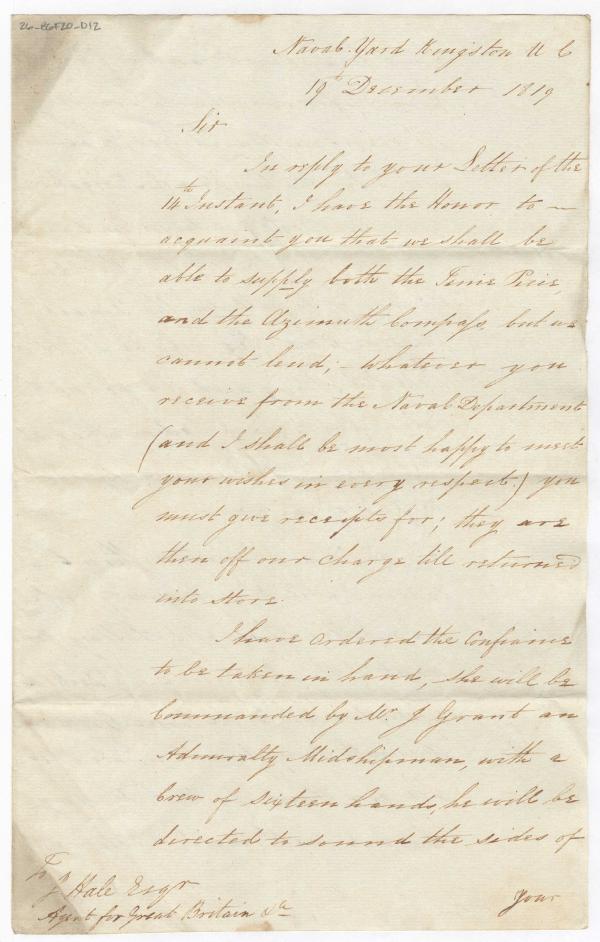 26-BGF20-D12
Naval Yard Kingston U C
19th December 1819
Sir
In reply to your Letter of the
14th Instant, I have the Honor to —
acquaint you that we shall be
able to supply both the Time Piece,
and the Azimuth Compass, but we
cannot lend; – whatever you
receive from the Naval Department
(and I shall be most happy to meet
your wishes in every respect) you
must give receipts for; they are
then off our charge till returned
into store.
I have ordered the Confiance
to be taken in hand, she will be
Commanded by Mr. J Grant an
Admiralty Midshipman, with a
Crew of sixteen hands, he will be
directed to sound the sides of
To
J Hale Esqr
Agent for Great Britain &c
Your